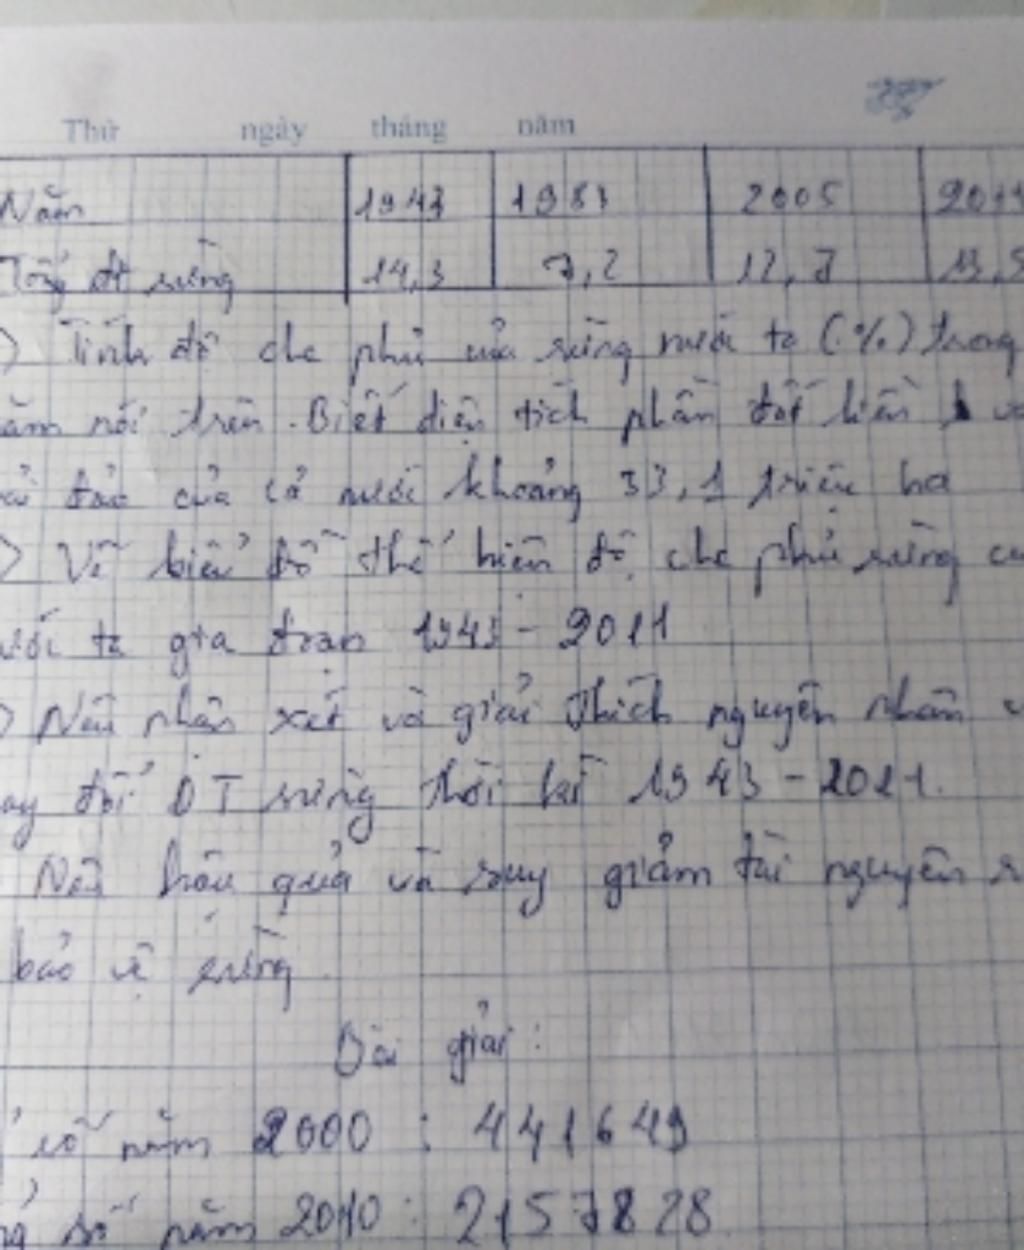 Thứ ngày tháng năm
Năm 1943 1983 2005 201
Tổng dt rừng 14,3 7,2 12,7 13,5
) Tính độ che phủ của rừng nước ta (%) trong
ăm nói trên. Biết diện tích phần đất liền
đảo của cả nước khoảng 33,1 triệu ha
) Vẽ biểu đồ thể hiện độ che phủ rừng
ước ta gia đoạn 1943 - 2011
) Nêu nhận xét và giải thích nguyên nhân
ay đổi DT rừng thời kì 1943 - 2011.
Nêu hậu quả và suy giảm tài nguyên r
bảo vệ rừng
Bài giải:
số năm 2000 : 441649
số năm 2010 : 2157828